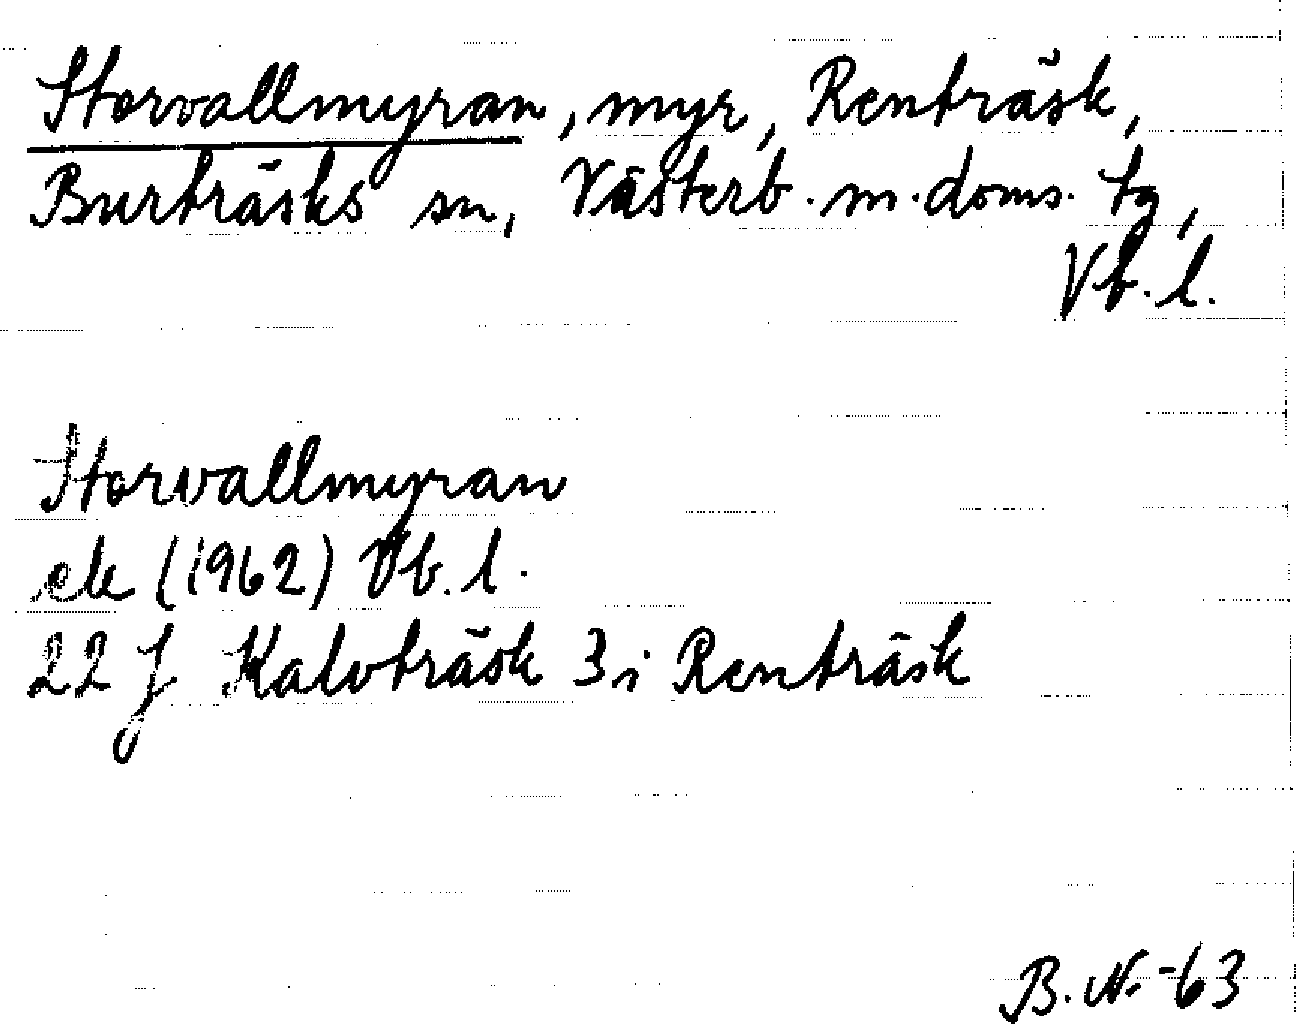 Storvallmyran, myr, Renträsk,
Burträsks sn, Västerb. m. doms. tg,
Vb. l.
Storvallmyran
ek (1962) Vb. l.
22 J Kalvträsk 3 i Renträsk
B. N. -63